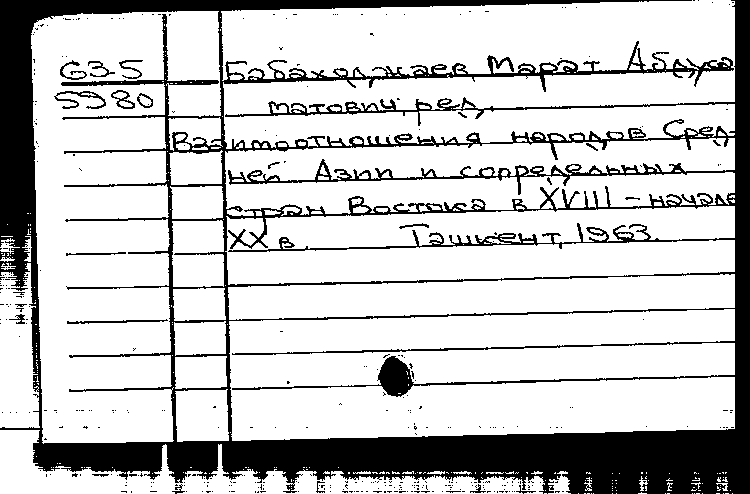 G3.5 Бабаходжаев, Марат Абдуса
5980 матович, ред.
Взаимоотношения народов Сред-
ней Азии и сопредельных
стран Востока в XVIII - начале
XX в Ташкент, 1963.